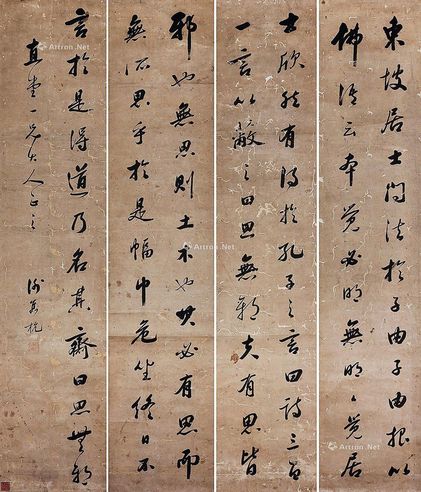 東坡居士問法於子由子由報以
佛語云本覺必明無明〻覺居
士欣然有得於孔子之言曰詩三百
一言以蔽之曰思無邪夫有思皆
邪也無思則土木也其必有思而
無所思乎於是幅巾危坐終日不
言於是得道乃名其齋曰思無邪
直堂一兄大人正之
Artron.Net
Artron.Net
Artron.Net
Artron.Net
Artron.Net
Artron.Net
Artron.Net
Artron.Net